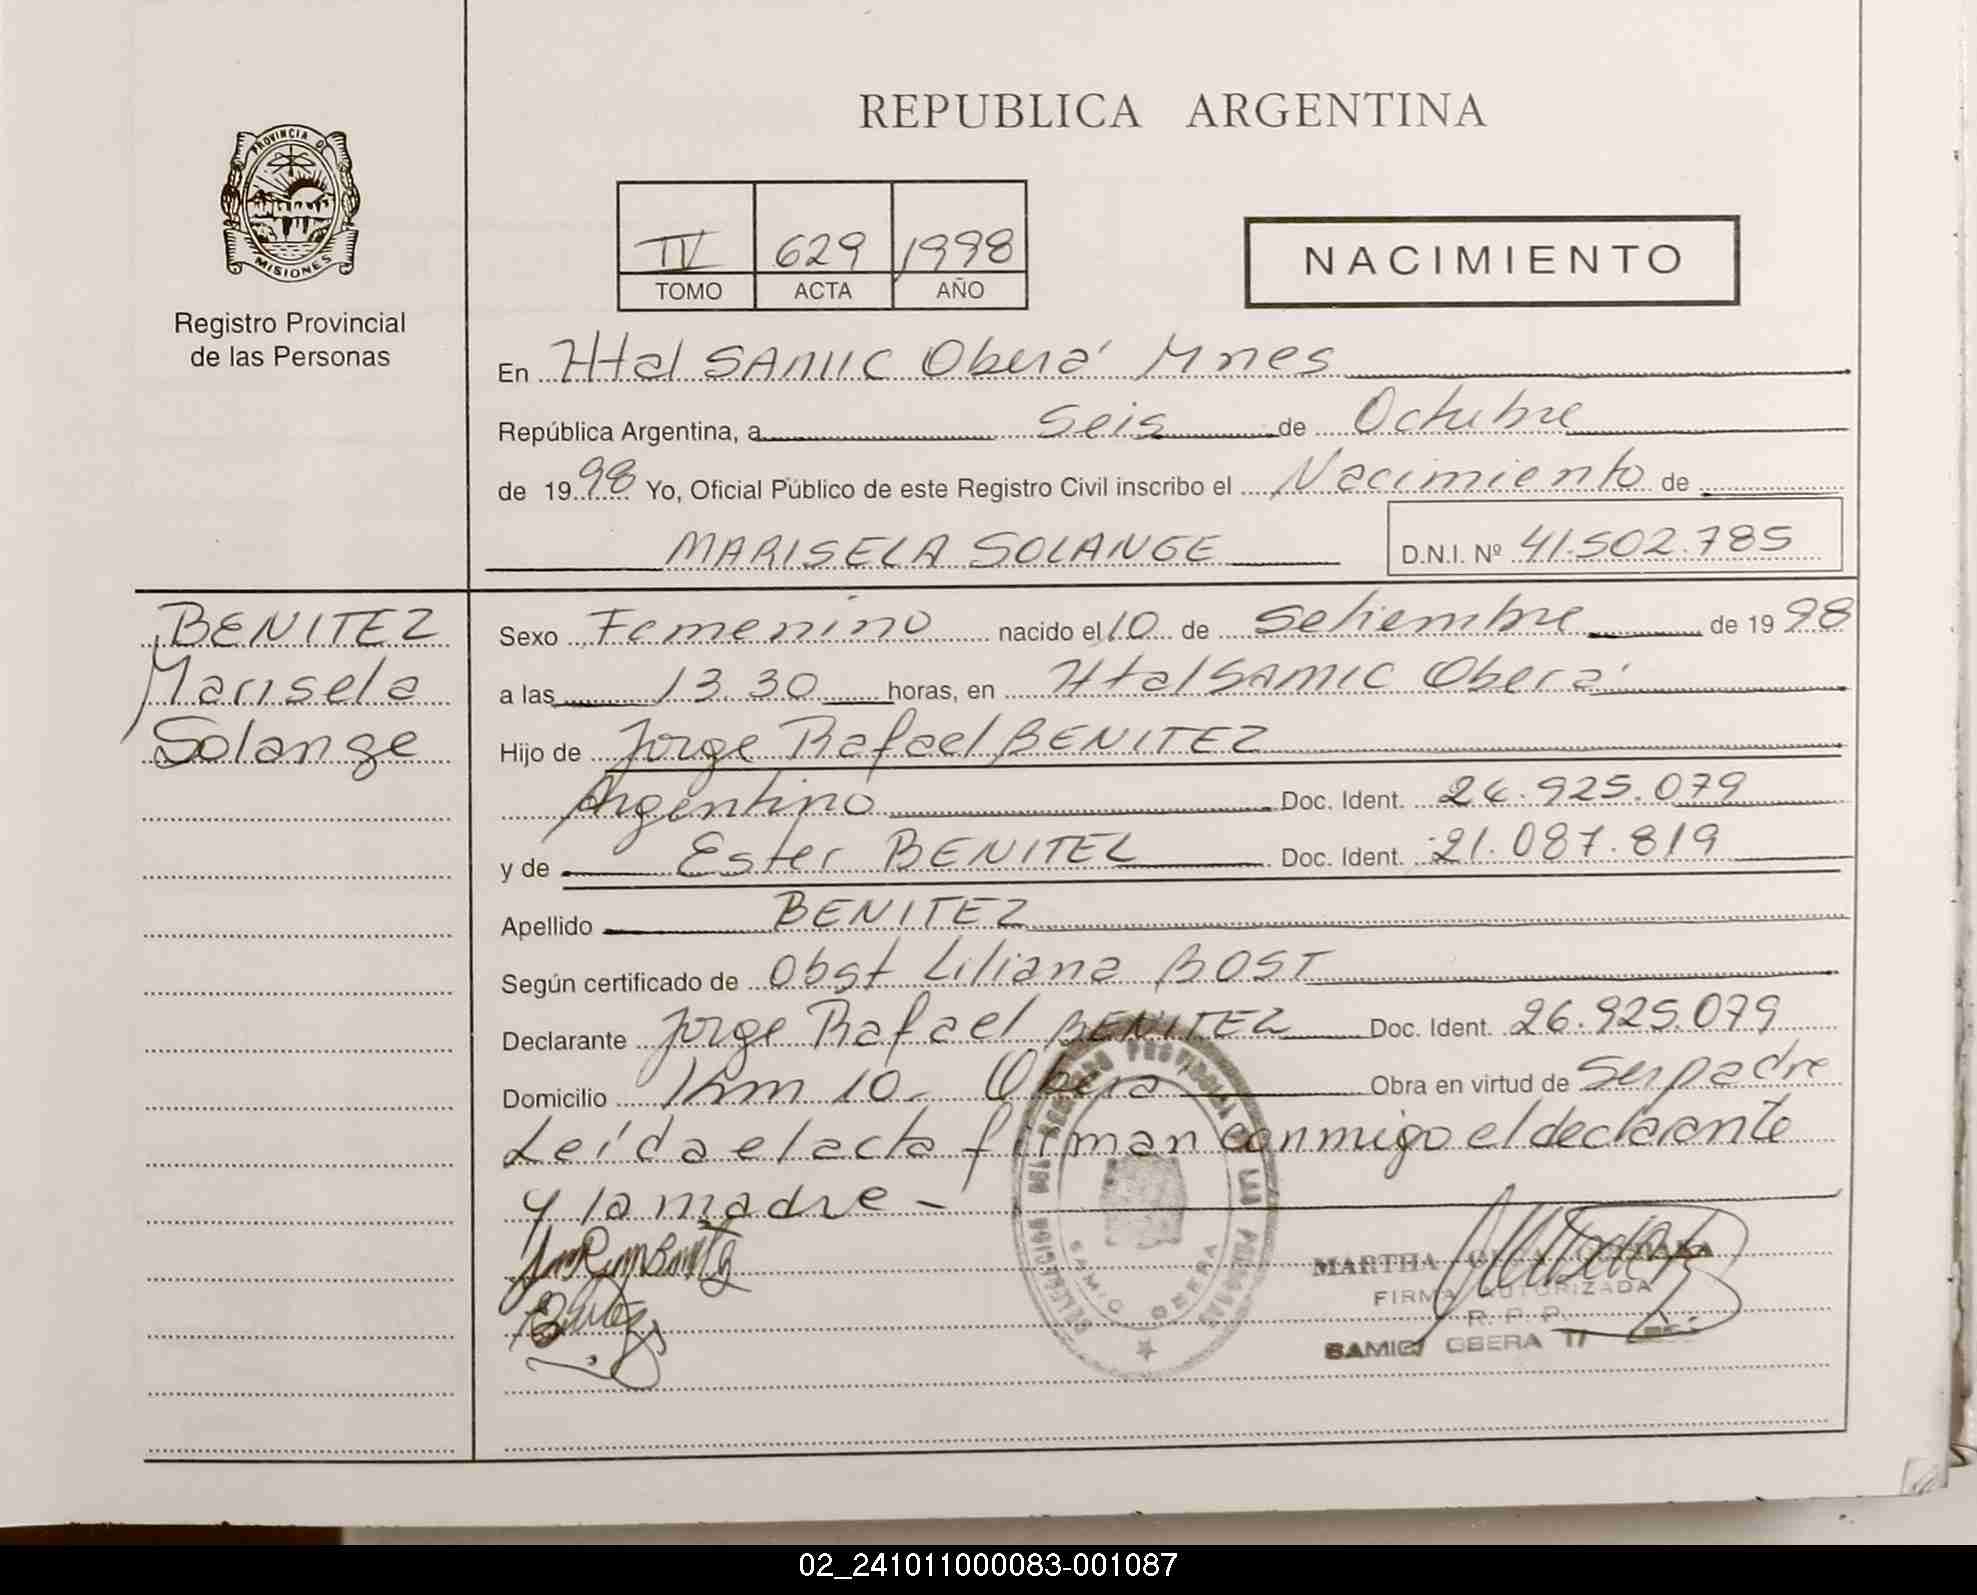 PROVINCIA D
MISIONES
Registro Provincial
de las Personas
REPUBLICA ARGENTINA
IV 629 1998
TOMO ACTA AÑO
NACIMIENTO
En Htal SAMIC Oberá Mnes
República Argentina, a Seis de Octubre
de 1998 Yo, Oficial Público de este Registro Civil inscribo el Nacimiento de
MARISELA SOLANGE D.N.I. Nº 41.502.785
BENITEZ
Marisela
Solange
Sexo Femenino nacido el 10 de Setiembre de 1998
a las 13.30 horas, en Htal SAMIC Oberá
Hijo de Jorge Rafael BENITEZ
Argentino Doc. Ident. 26.925.079
y de Ester BENITEZ Doc. Ident. 21.087.819
Apellido BENITEZ
Según certificado de Obst Liliana BOST
Declarante Jorge Rafael BENITEZ Doc. Ident. 26.925.079
Domicilio Km 10 - Obera Obra en virtud de Ser padre
Leída el acta firman conmigo el declarante
y la madre -
SAMIC OBERA
MARTHA
FIRMA AUTORIZADA
R. P. P.
SAMIC OBERA
02_241011000083-001087